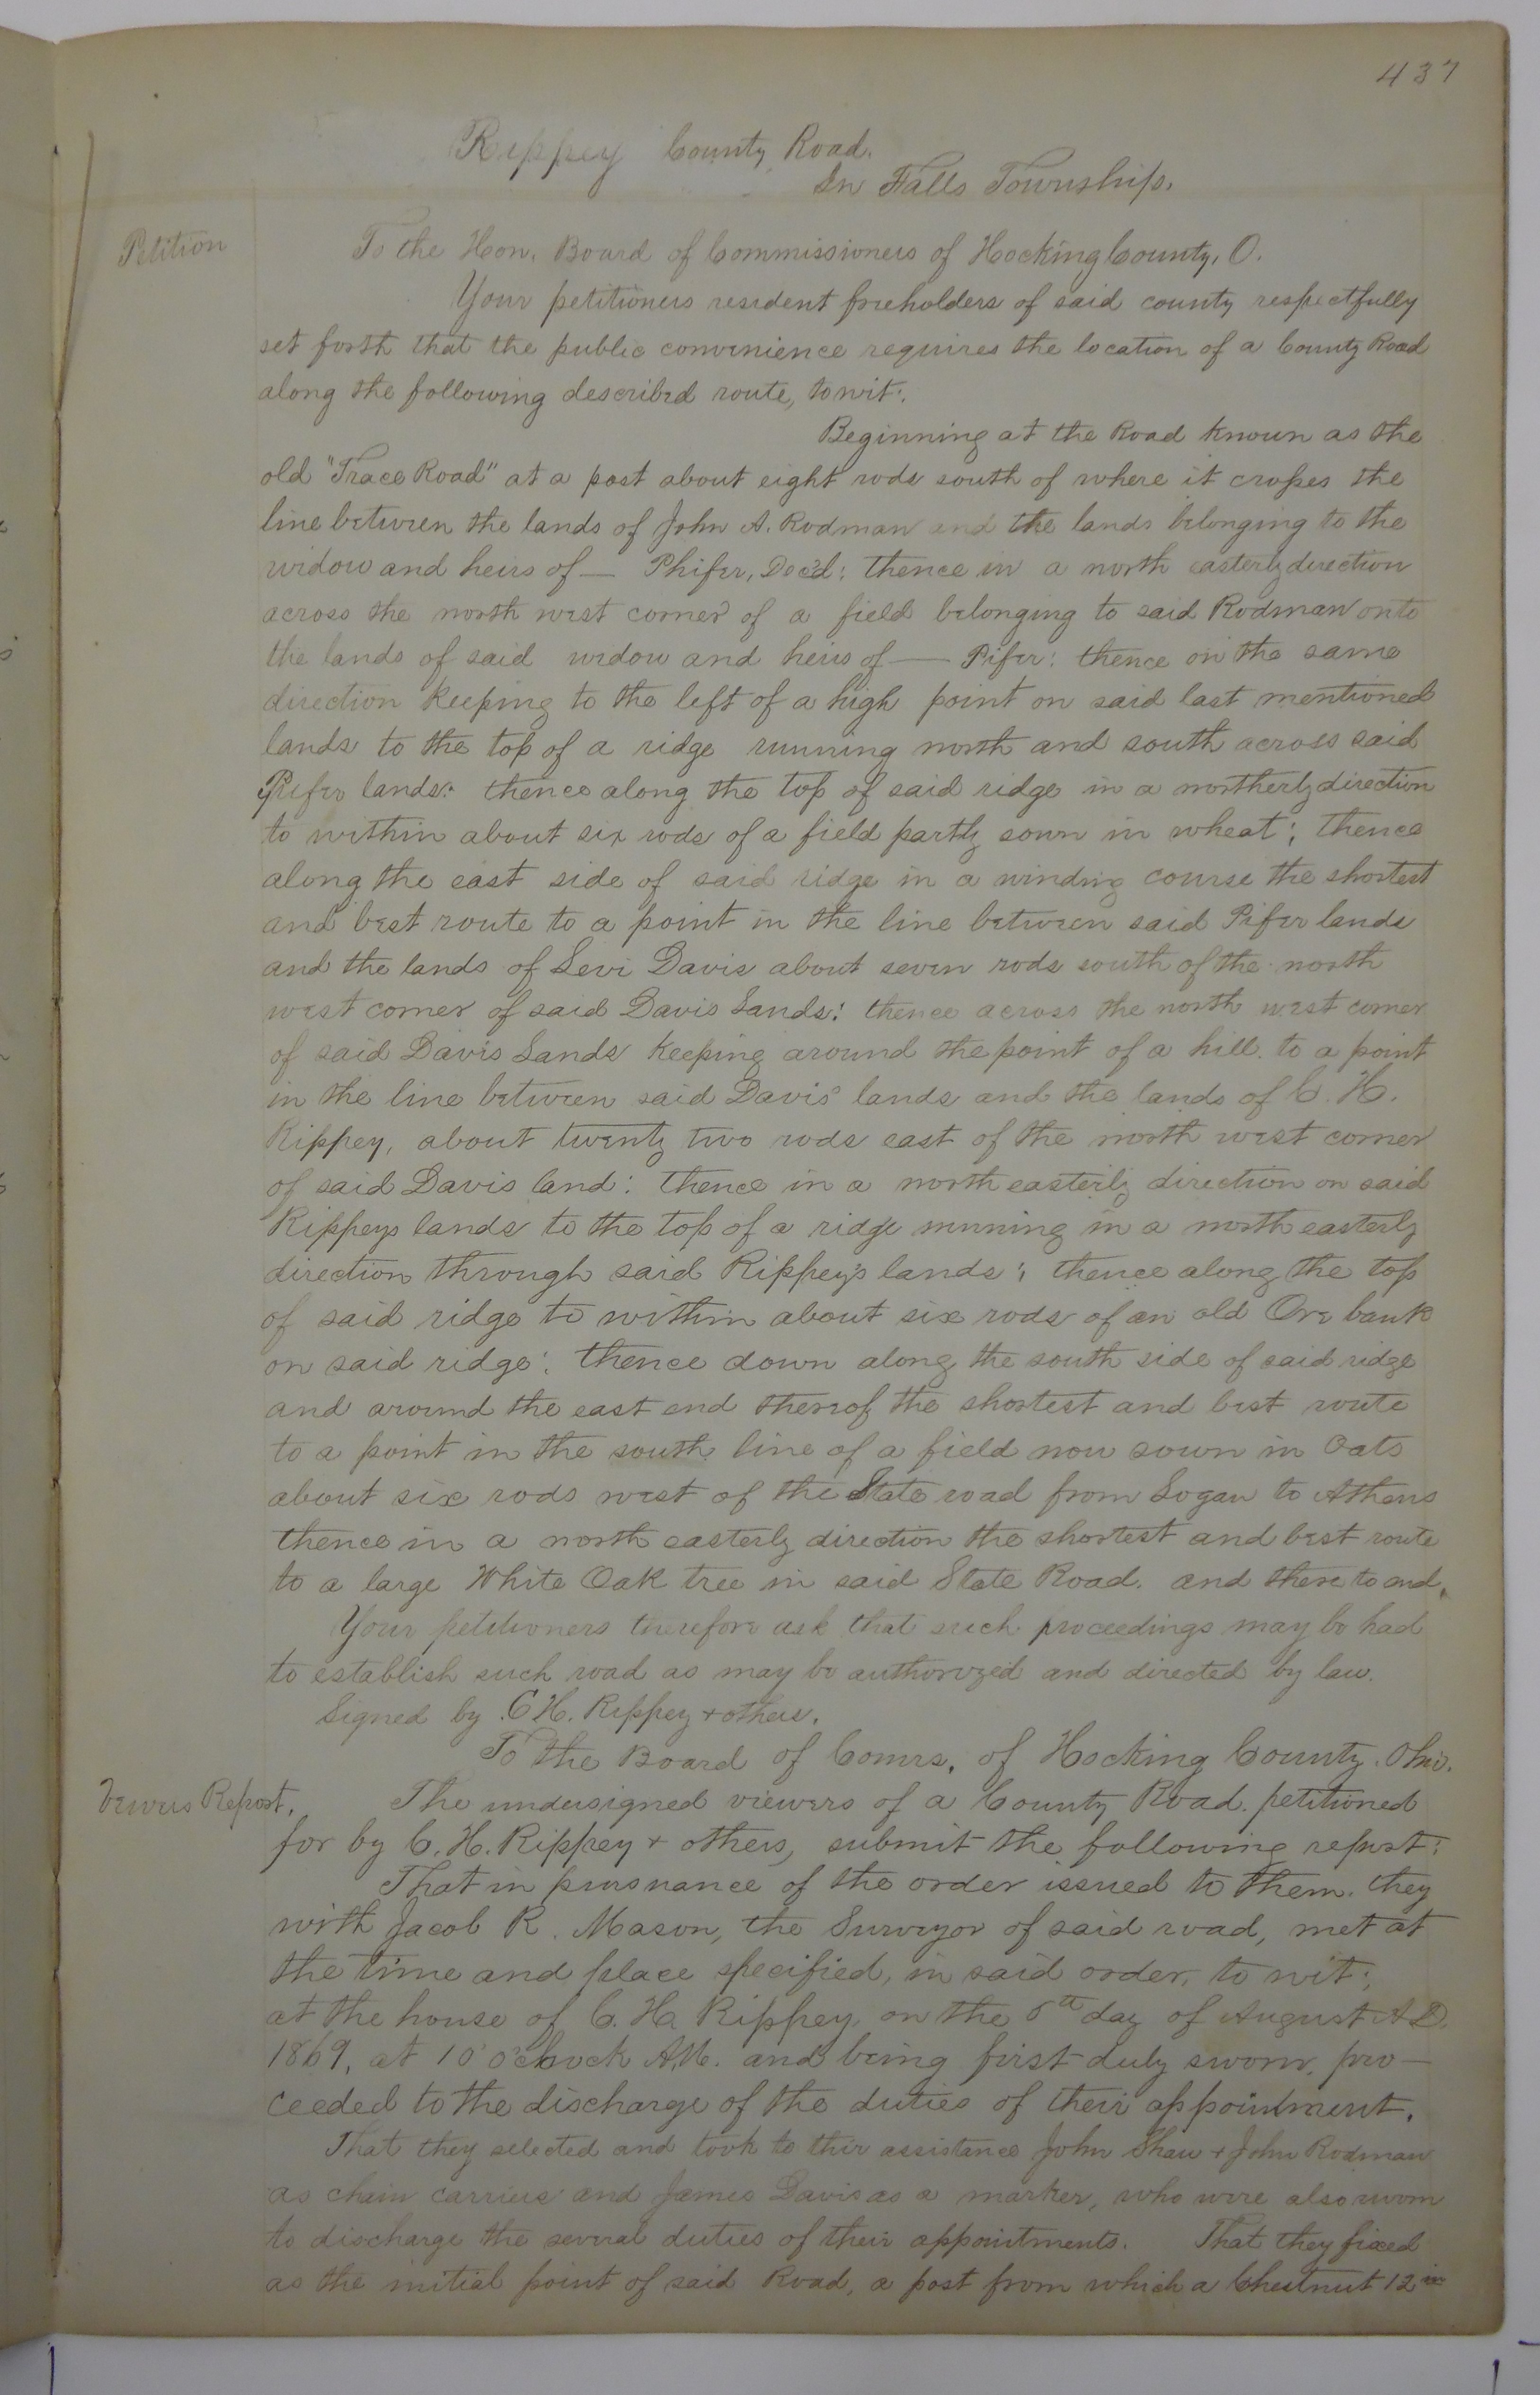 437
Rippey County Road.
In Falls Township.
Petition
To the Hon. Board of Commissioners of Hocking County, O.
Your petitioners resident freeholders of said county respectfully
set forth that the public convenience requires the location of a County Road
along the following described route, to wit:
Beginning at the Road known as the
old "Trace Road" at a post about eight rods south of where it crosses the
line between the lands of John A. Rodman and the lands belonging to the
widow and heirs of — Phifer, Dec'd: thence in a north easterly direction
across the north west corner of a field belonging to said Rodman onto
the lands of said widow and heirs of — Pifer: thence on the same
direction keeping to the left of a high point on said last mentioned
lands to the top of a ridge running north and south across said
Pifer lands: thence along the top of said ridge in a northerly direction
to within about six rods of a field partly sown in wheat; thence
along the east side of said ridge in a winding course the shortest
and best route to a point in the line between said Pifer lands
and the lands of Levi Davis about seven rods south of the north
west corner of said Davis Lands: thence across the north west corner
of said Davis Lands keeping around the point of a hill. to a point
in the line between said Davis' lands and the lands of C. H.
Rippey, about twenty two rods east of the north west corner
of said Davis land: thence in a north easterly direction on said
Rippeys lands to the top of a ridge running in a north easterly
direction through said Rippey's lands; thence along the top
of said ridge to within about six rods of an old Ore bank
on said ridge: thence down along the south side of said ridge
and around the east end thereof the shortest and best route
to a point in the south line of a field now sown in Oats
about six rods west of the State road from Logan to Athens
thence in a north easterly direction the shortest and best route
to a large White Oak tree in said State Road. and there to end.
Your petitioners therefore ask that such proceedings may be had
to establish such road as may be authorized and directed by law.
Signed by C H. Rippey + others.
To the Board of Comrs. of Hocking County. Ohio.
Viewers Report.
The undersigned viewers of a County Road. petitioned
for by C. H. Rippey + others, submit the following report:
That in pursuance of the order issued to them. they
with Jacob R. Mason, the Surveyor of said road, met at
the time and place specified, in said order, to wit:
at the house of C. H. Rippey, on the 5th day of August A.D.
1869, at 10 o'clock A.M. and being first duly sworn, pro-
ceeded to the discharge of the duties of their appointment.
That they selected and took to their assistance John Shaw + John Rodman
as chain carriers and James Davis as a marker, who were also sworn
to discharge the several duties of their appointments. That they fixed
as the initial point of said Road, a post from which a Chestnut 12 in